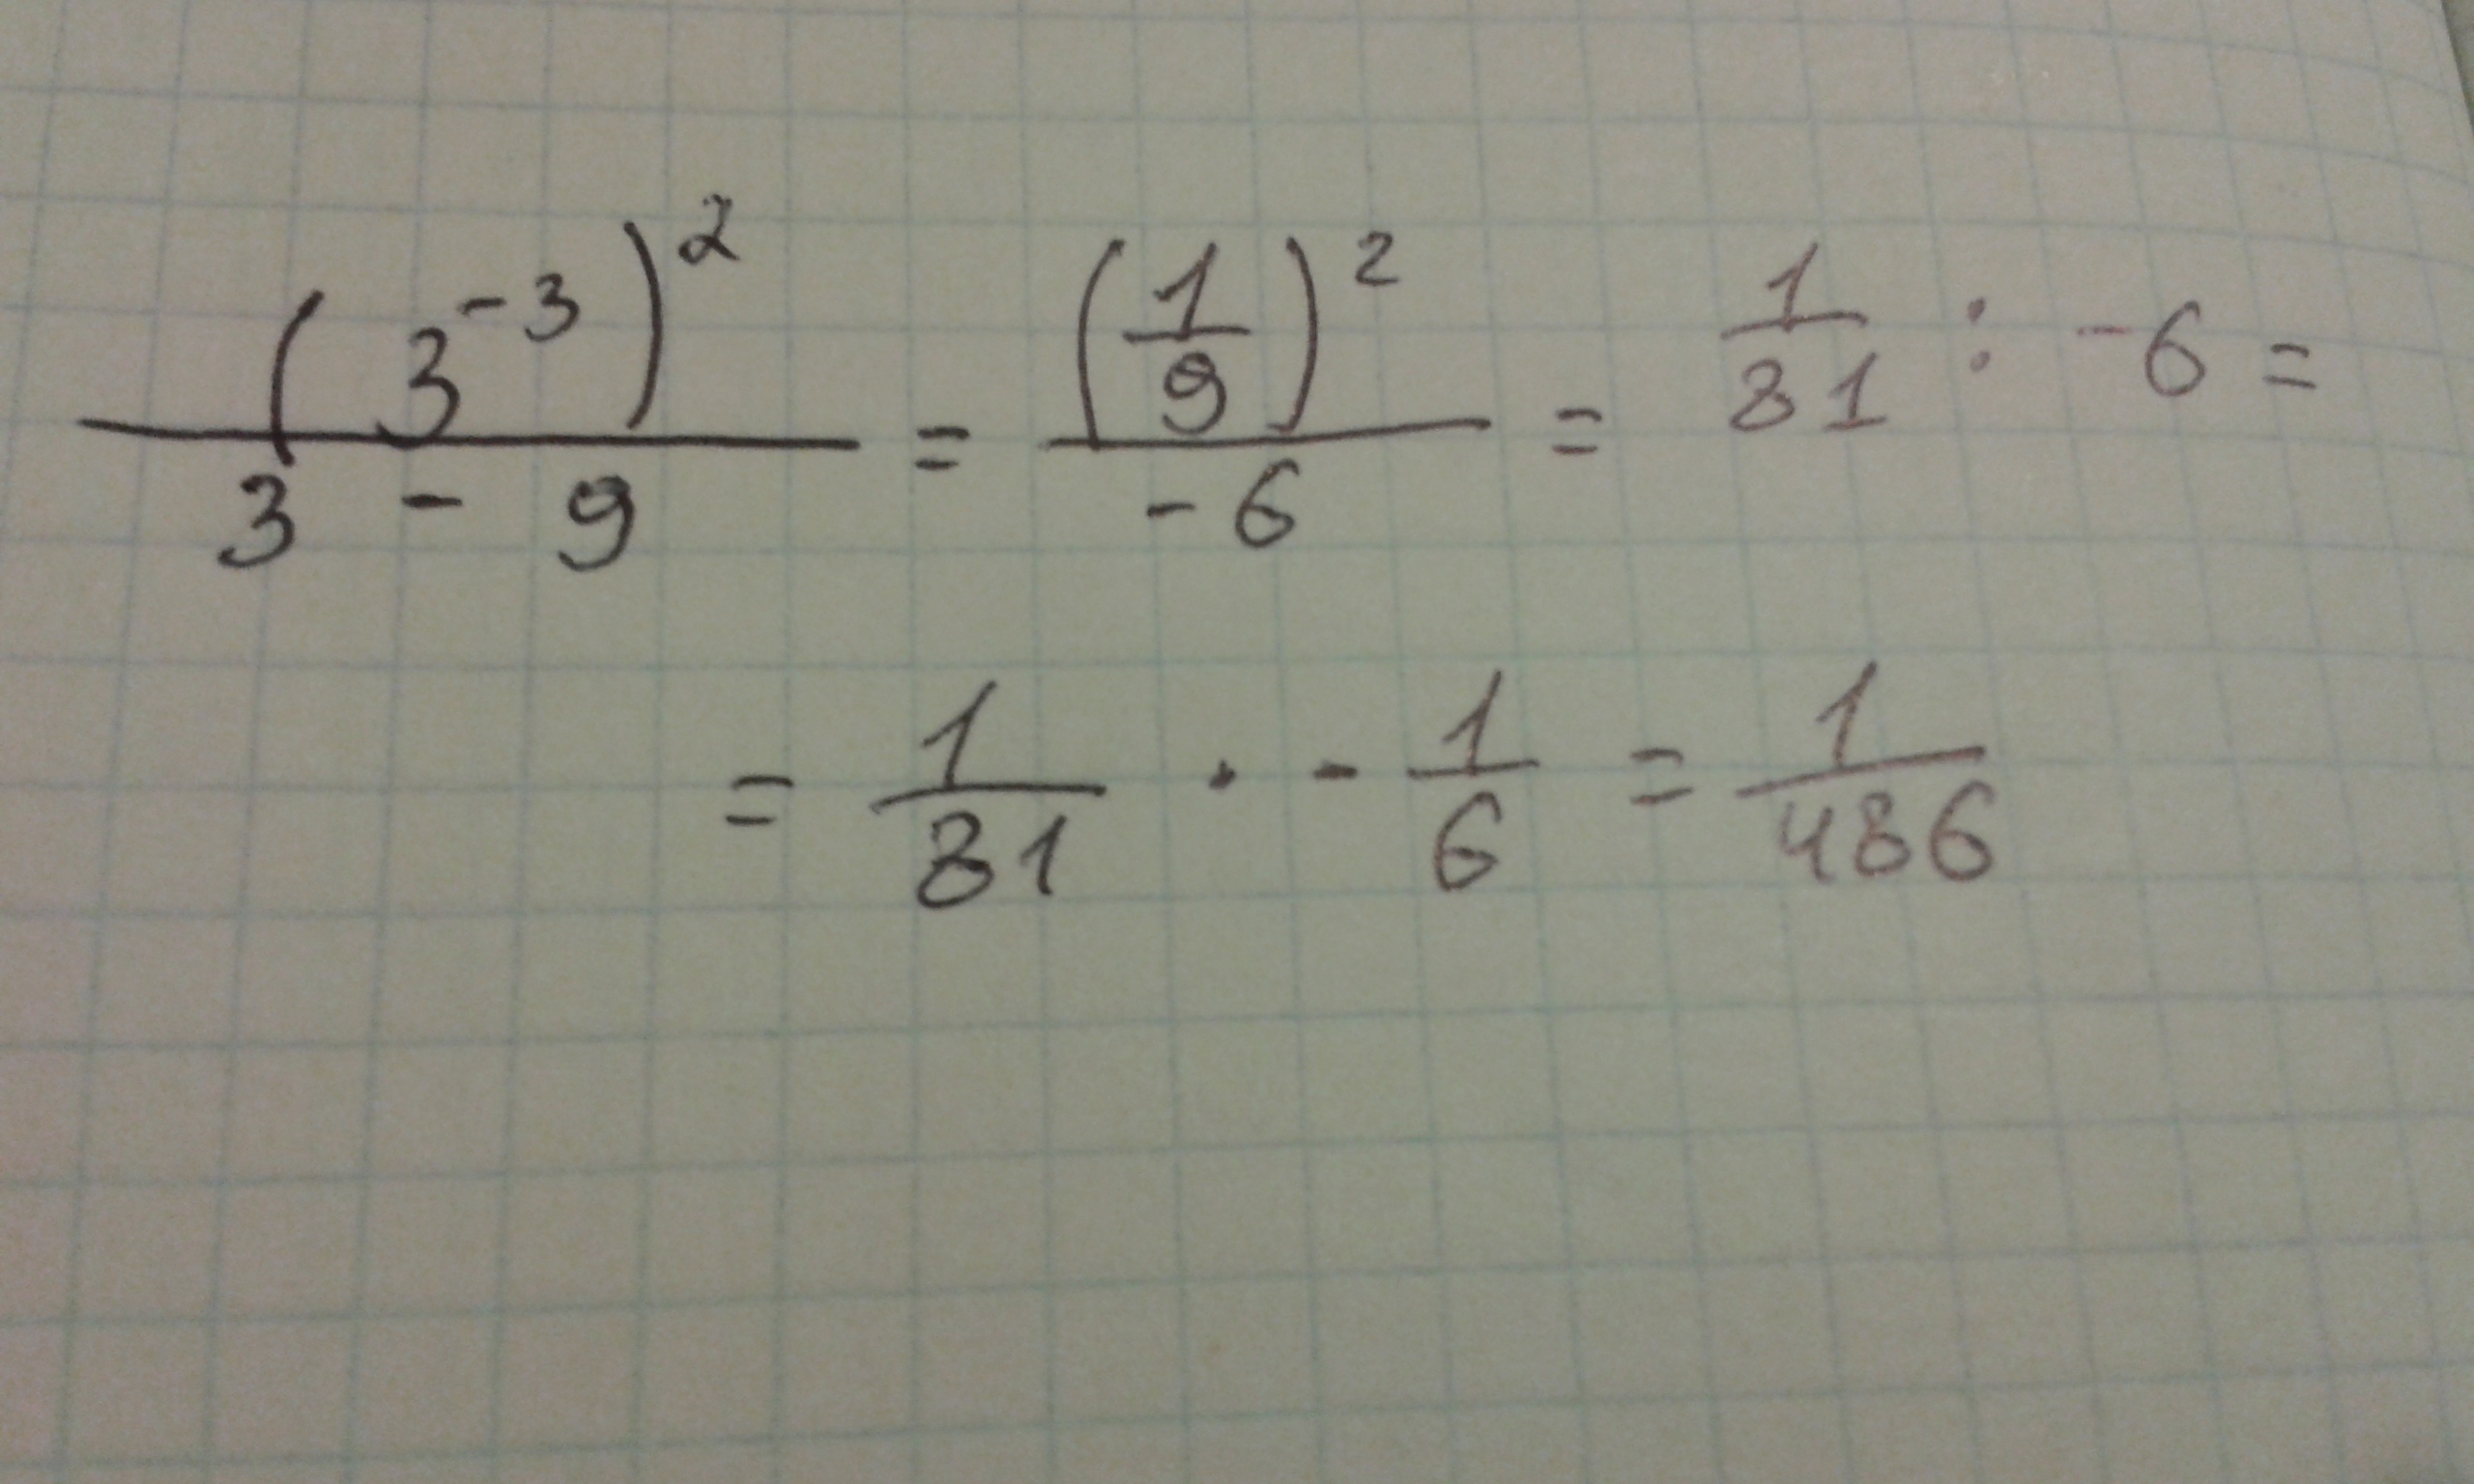 (3^-3)^2 / 3 - 9 = (1/9)^2 / -6 = 1/81 : -6 =
= 1/81 · - 1/6 = 1/486